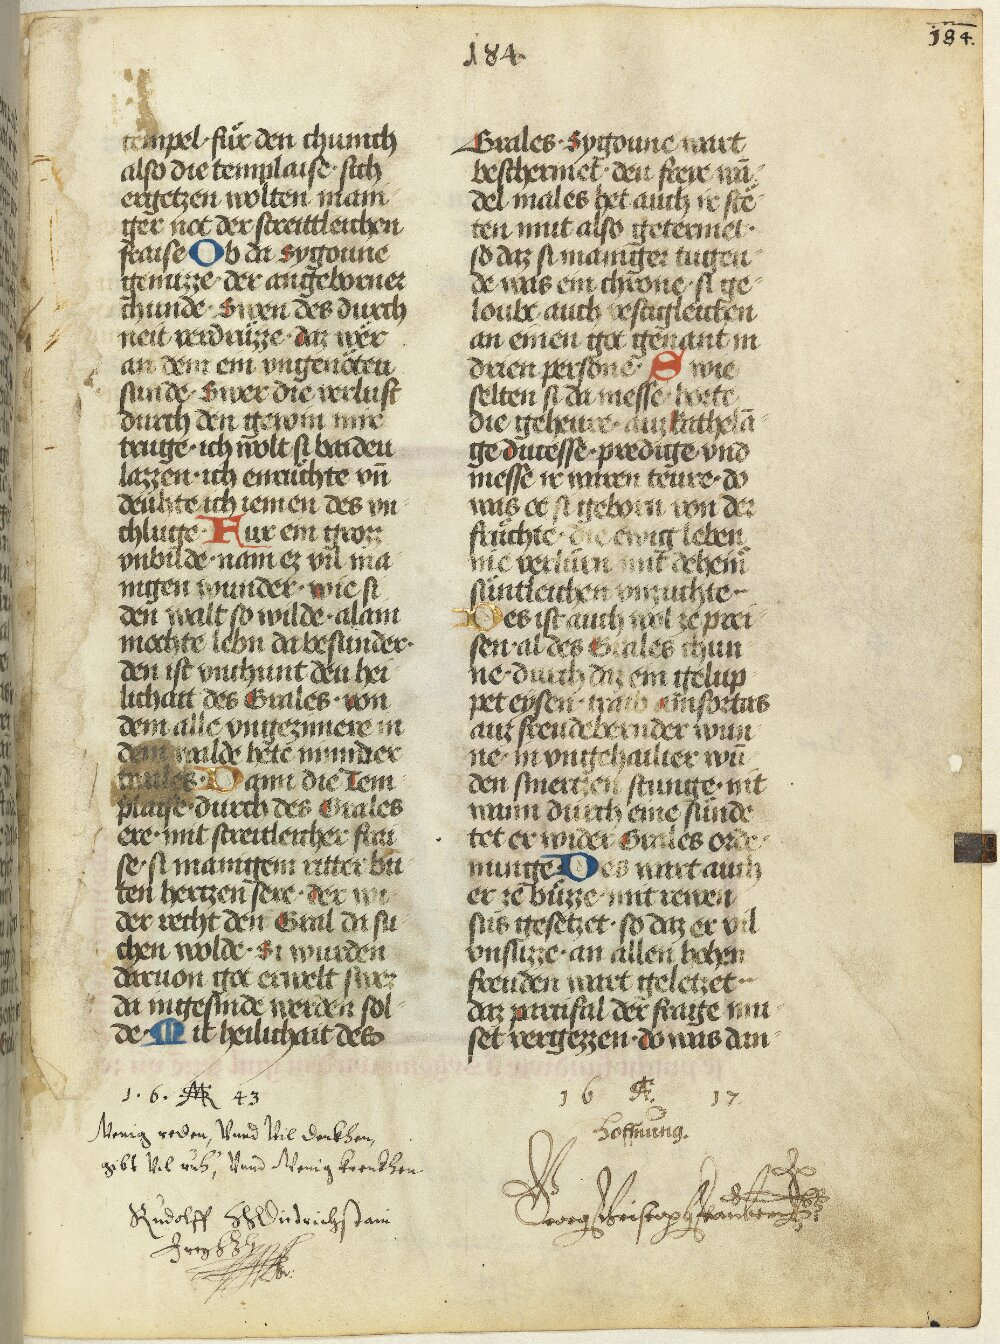 184.
184.
tempel· für den chunich
also die templaise· sich
ergetzen wolten mani
ger not der streittleichen
fraise Ob da Sygoune
genuzze· der angeborner
chunde· Swen des durch
neit verdruzze· daz wër
an dem ein vngenöten
sunde· Swer die verlust
durch den gewin mir
truge· ich wolt si baiden
lazzen· ich enruchte vn̄
deuhte ich iemen des vn
chluge· Fur ein groz
vnbilde· nam ez vil ma
nigen wunder· wie si
den walt so wilde· alain
mochte lebn da besunder·
den ist vnchunt deu hei
lichait des Grales· von
dem alle vngezimere in
dem walde hete minner
Dann die Tem
plaise· durch des Grales
ere· mit streitleicher frai
se· si manigem ritter bu
ten hertzen sere· der wi
der recht den Gral da su
chen wolde· Si wurden
daruon got erwelt swer
da ingesinde werden sol
de· Mit heilichait des
Grales· Sygoune wart
beschermet· den frere wā
del males het auch ir stë
ten mut also getermet·
so daz si maniger tugen
de was ein chrone· si ge
loubt auch vestigleichen
an einen got genant in
drien persone· Swie
selten si da messe horte
die geheure· auz kathelā
ge ducesse· predige vnd
messe ir waren teure· do
was et si geborn von der
fruchte· die ewig leben
nie verlurn mit deheiner
suntleichen vnzuchte·
Des ist auch wol ze prei
sen· al des Grales chun
ne· durch daz ein gelup
pet eysen· traib amfortas
auz freudebernder wun
ne· in vngehailter wū
den smertzen stunge· nit
wann durch eine sunde
tet er wider Grales orde
nunge Des wart auch
er ze buzze· mit rewen
sus gesetzet· so daz er vil
vnsuzze· an allen hohen
freuden wart geletzet·
daz partifal der frage mu
set vergezzen· do was dan
1·6· 43
Wenig reden, Vnnd Vil denkhen,
gibt Vil ruh, Vnnd Wenig krenkhen.
Rudolff H H V Dietrichstain
Freyherr
16 17
Hoffnung.
Georg Christoph